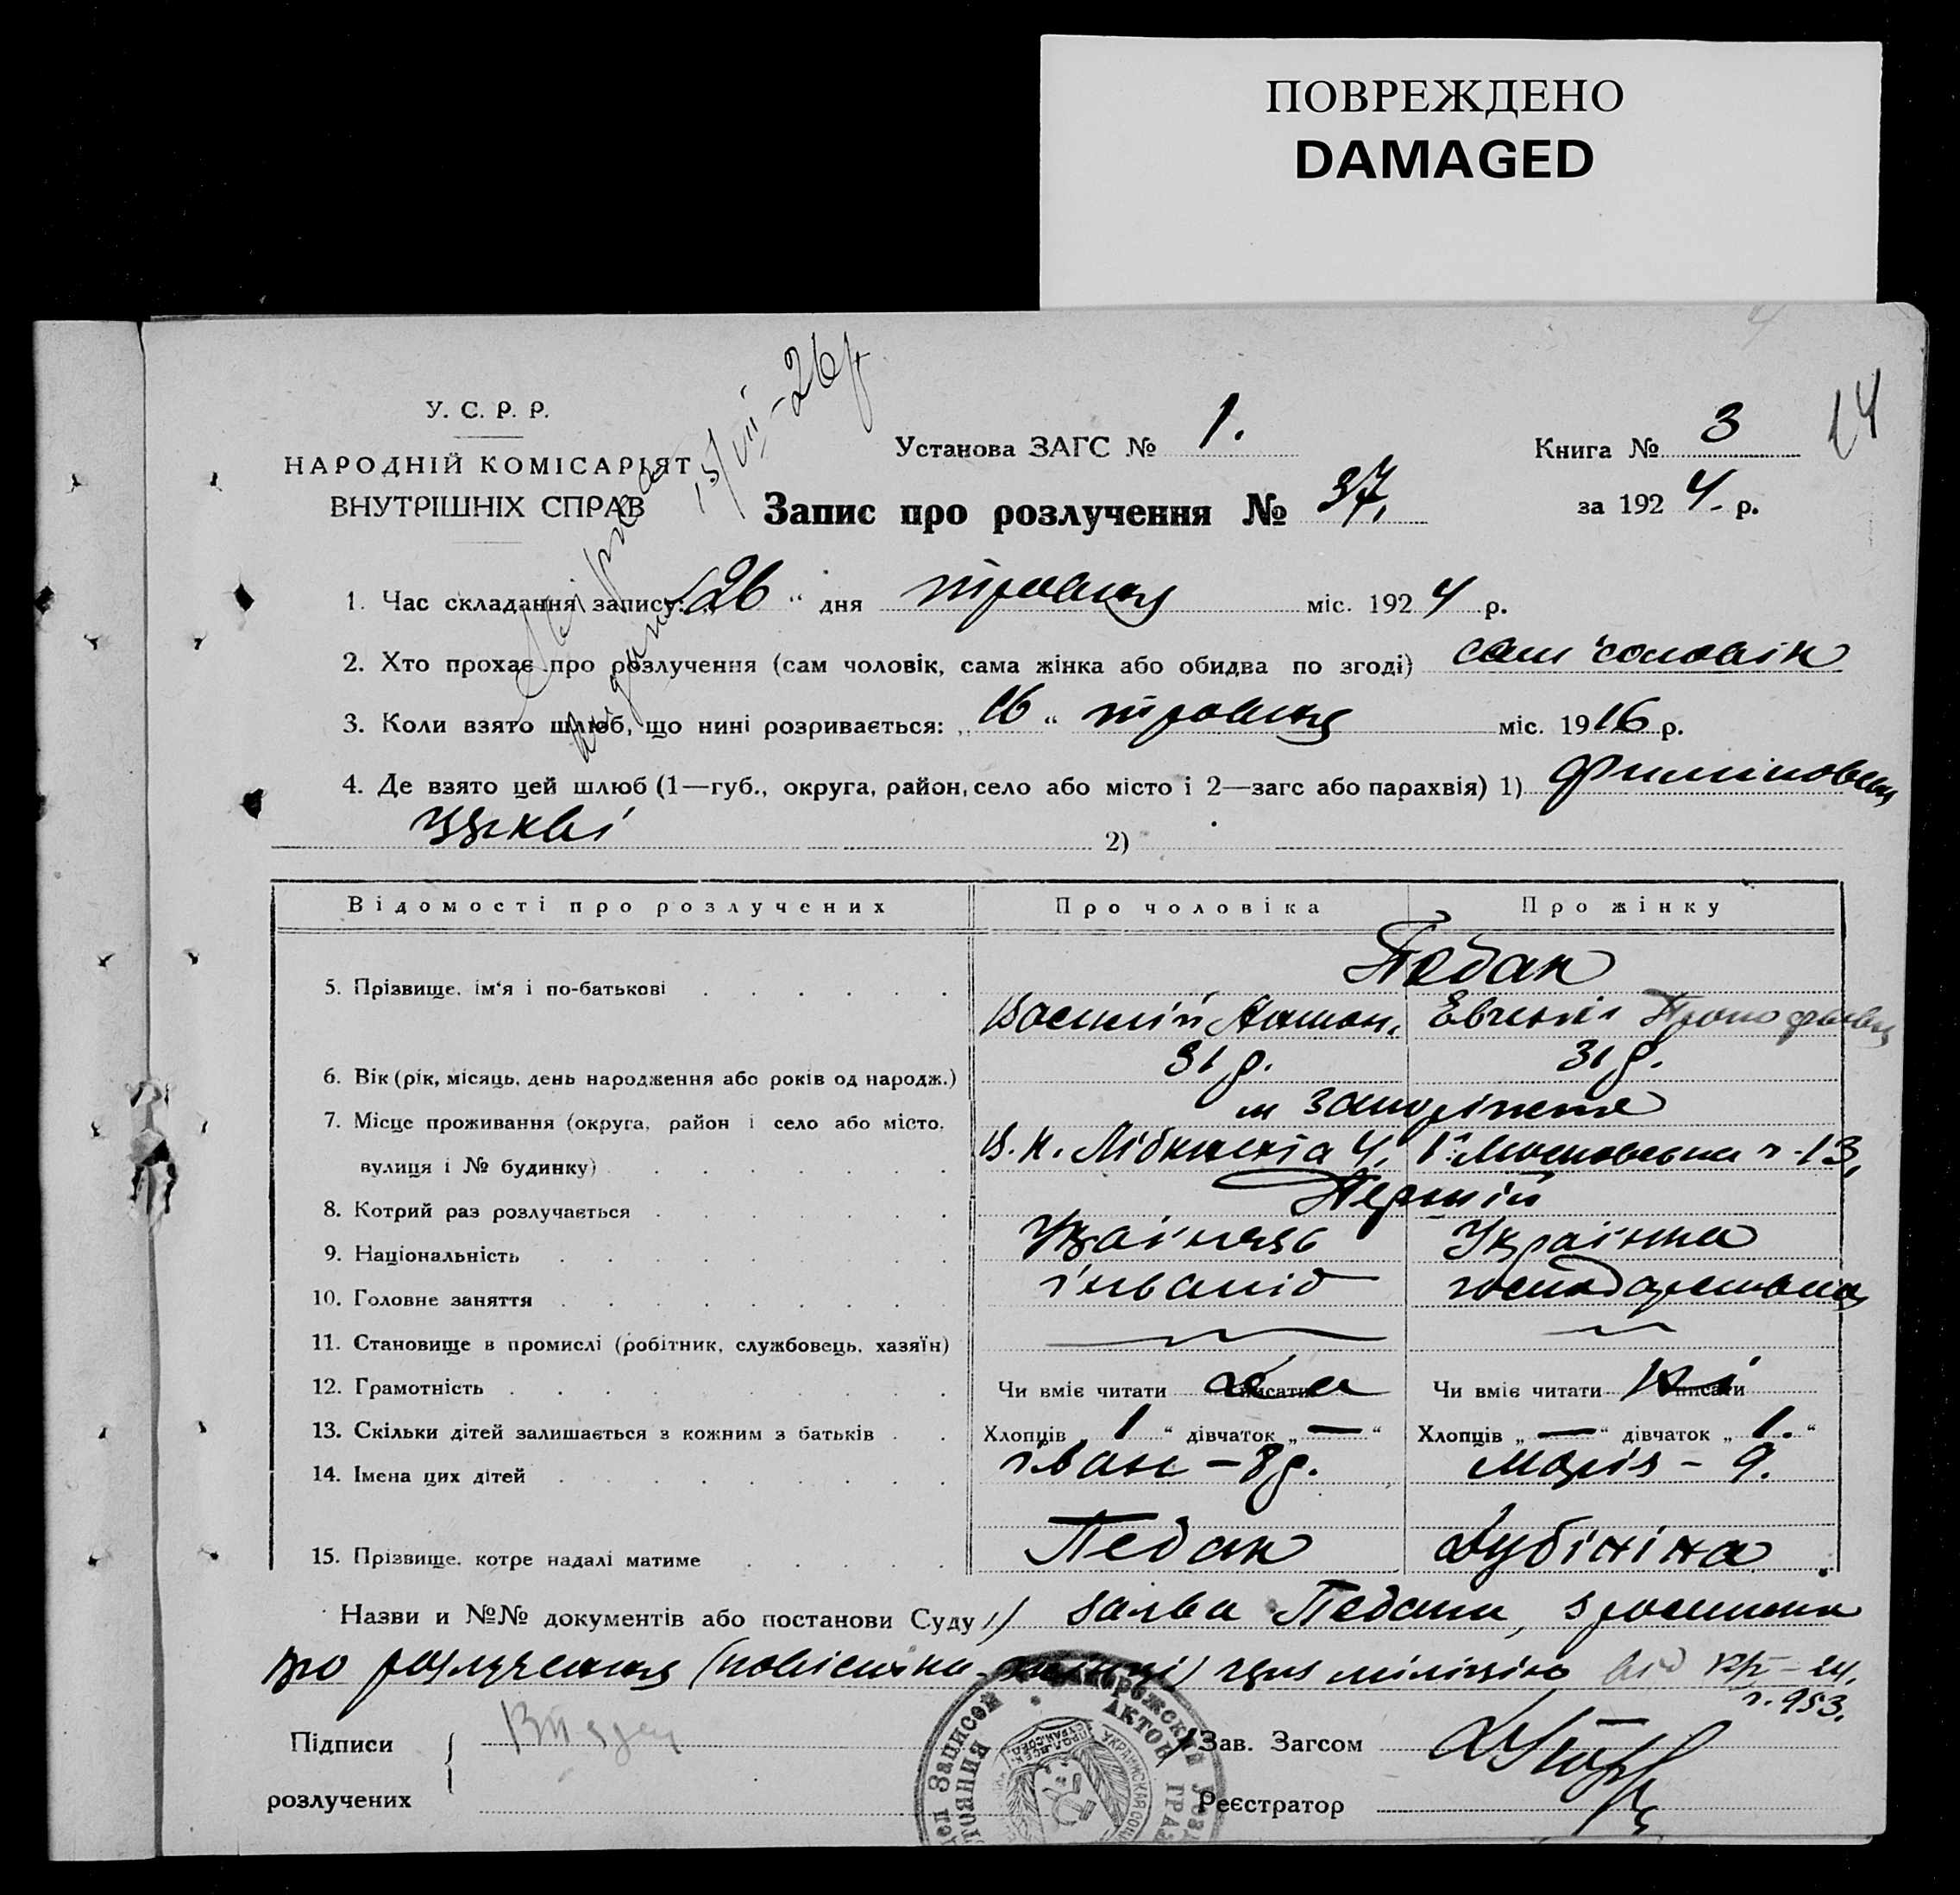 ПОВРЕЖДЕНО
DAMAGED
14
У. С. Р. Р.
НАРОДНІЙ КОМІСАРІЯТ
ВНУТРІШНІХ СПРАВ
15/VII-26р
Установа ЗАГС № 1.
Книга № 3
Запис про розлучення № 37,
за 1924. р.
1. Час складання запису: „26“ дня травня міс. 1924 р.
2. Хто прохає про розлучення (сам чоловік, сама жінка або обидва по згоді) сам чоловік
3. Коли взято шлюб, що нині розривається: „16“ травня міс. 1916 р.
4. Де взято цей шлюб (1—губ., округа, район, село або місто і 2—загс або парахвія) 1)
церкві 2)
Відомості про розлучених Про чоловіка Про жінку
Педан
5. Прізвище, ім'я і по-батькові Василій Антон. Евгенія Прокофьевн
6. Вік (рік, місяць, день народження або років од народж.) 31 р. 31 р.
7. Місце проживання (округа, район і село або місто, м Запоріжжя
вулиця і № будинку) В. К. Лібкнехта 4, Московська ч. 13,
8. Котрий раз розлучається Перший
9. Національність Украінець Украінка
10. Головне заняття інвалід господарством
11. Становище в промислі (робітник, службовець, хазяїн)
12. Грамотність Чи вміє читати писати да Чи вміє читати писати ні
13. Скільки дітей залишається з кожним з батьків Хлопців „1“ дівчаток „—“ Хлопців „—“ дівчаток „1.“
14. Імена цих дітей Іван – 8 р. Марія – 9.
15. Прізвище, котре надалі матиме Педан Дубініна
Назви и №№ документів або постанови Суду 1) заява Педана,
про розлучення через міліцію від
ч. 953.
Підписи
розлучених
Зав. Загсом
Реєстратор